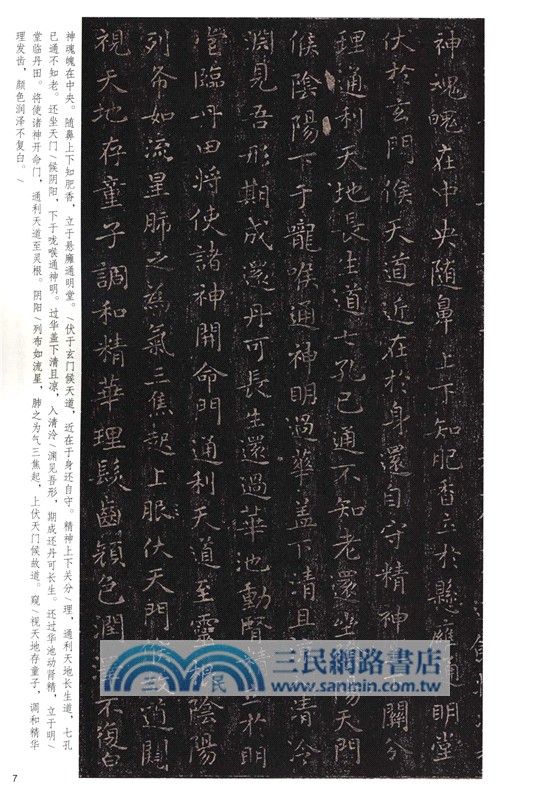 神魂魄在中央随鼻上下知肥香立於懸廱通明堂
伏於玄門候天道近在於身還自守精神上下關分
理通利天地長生道七孔已通不知老還坐陰陽天門
候陰陽下于嚨喉通神明過華蓋下清且涼入清泠
淵見吾形期成還丹可長生還過華池動腎精立於明
堂臨丹田將使諸神開命門通利天道至靈根陰陽
列布如流星肺之為氣三焦起上服伏天門候故道闚
視天地存童子調和精華理髮齒顏色潤澤不復白
神魂魄在中央。随鼻上下知肥香，立于悬廱通明堂。/伏于玄门候天道，近在于身还自守。精神上下关分/理，通利天地长生道，七孔
已通不知老。还坐天门/候阴阳，下于咙喉通神明。过华盖下清且凉，入清泠/渊见吾形，期成还丹可长生。还过华池动肾精，立于明/
堂临丹田。将使诸神开命门，通利天道至灵根。阴阳/列布如流星，肺之为气三焦起，上伏天门候故道。窥/视天地存童子，调和精华
理发齿，颜色润泽不复白。/
三民網路書店
www.sanmin.com.tw
7